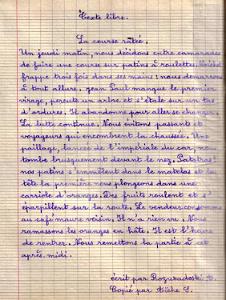 Texte libre.
La course ratée.
Un jeudi matin, nous décidons entre camarades
de faire une course sur patins à roulettes.
frappe trois fois dans ses mains : nous démarrons
à tout allure. Jean Paul manque le premier
virage, percute un arbre et s'étale sur un tas
d'ordures. Il abandonne pour aller se changer.
La lutte continue. Nous évitons passants et
voyageurs qui encombrent la chaussée. Une
paillasse, lancée de l'impériale du car, nous
tombe brusquement devant le nez. Patatras!
nos patins s'enraillent dans le matelas et la
tête la première nous plongeons dans une
carriole d'oranges. Des fruits roulent et s'
éparpillent sur la route. Le vendeur
au café maure voisin. Il n'a rien vu. Nous
ramassons les oranges en hâte. Il est l'heure
de rentrer. Nous remettons la partie à cet
après midi.
Écrit par
Copié par